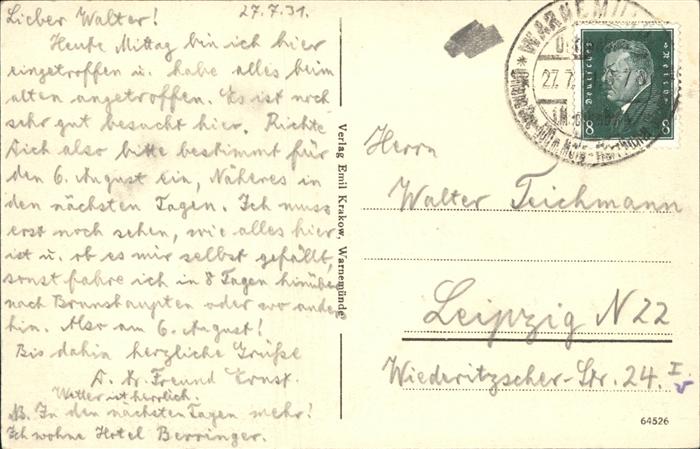 Lieber Walter! 27.7.31.
Heute Mittag bin ich hier
eingetroffen u. habe alles beim
alten angetroffen. Es ist noch
sehr gut besucht hier. Richte
Dich also bitte bestimmt für
den 6. August ein, Näheres in
den nächsten Tagen. Ich muss
erst noch sehen, wie alles hier
ist u. ob es mir selbst gefällt,
sonst fahre ich in 8 Tagen hinüber
nach Brunshaupten oder wo anders
hin. Also am 6. August!
Bis dahin herzliche Grüße
D. tr. Freund Ernst.
Wetter ist herrlich.
NB. In den nächsten Tagen mehr!
Ich wohne Hotel Berringer.
Verlag Emil Krakow, Warnemünde
WARNEMÜNDE
27.7.
Deutsches Reich
8 8
Herrn
Walter Teichmann
Leipzig N 22
Wiederitzscher-Str. 24. I
64526